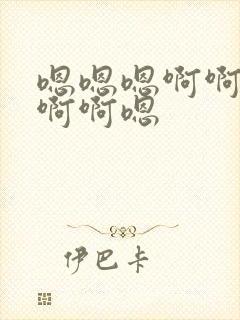 嗯嗯嗯啊啊
啊啊嗯
伊巴卡